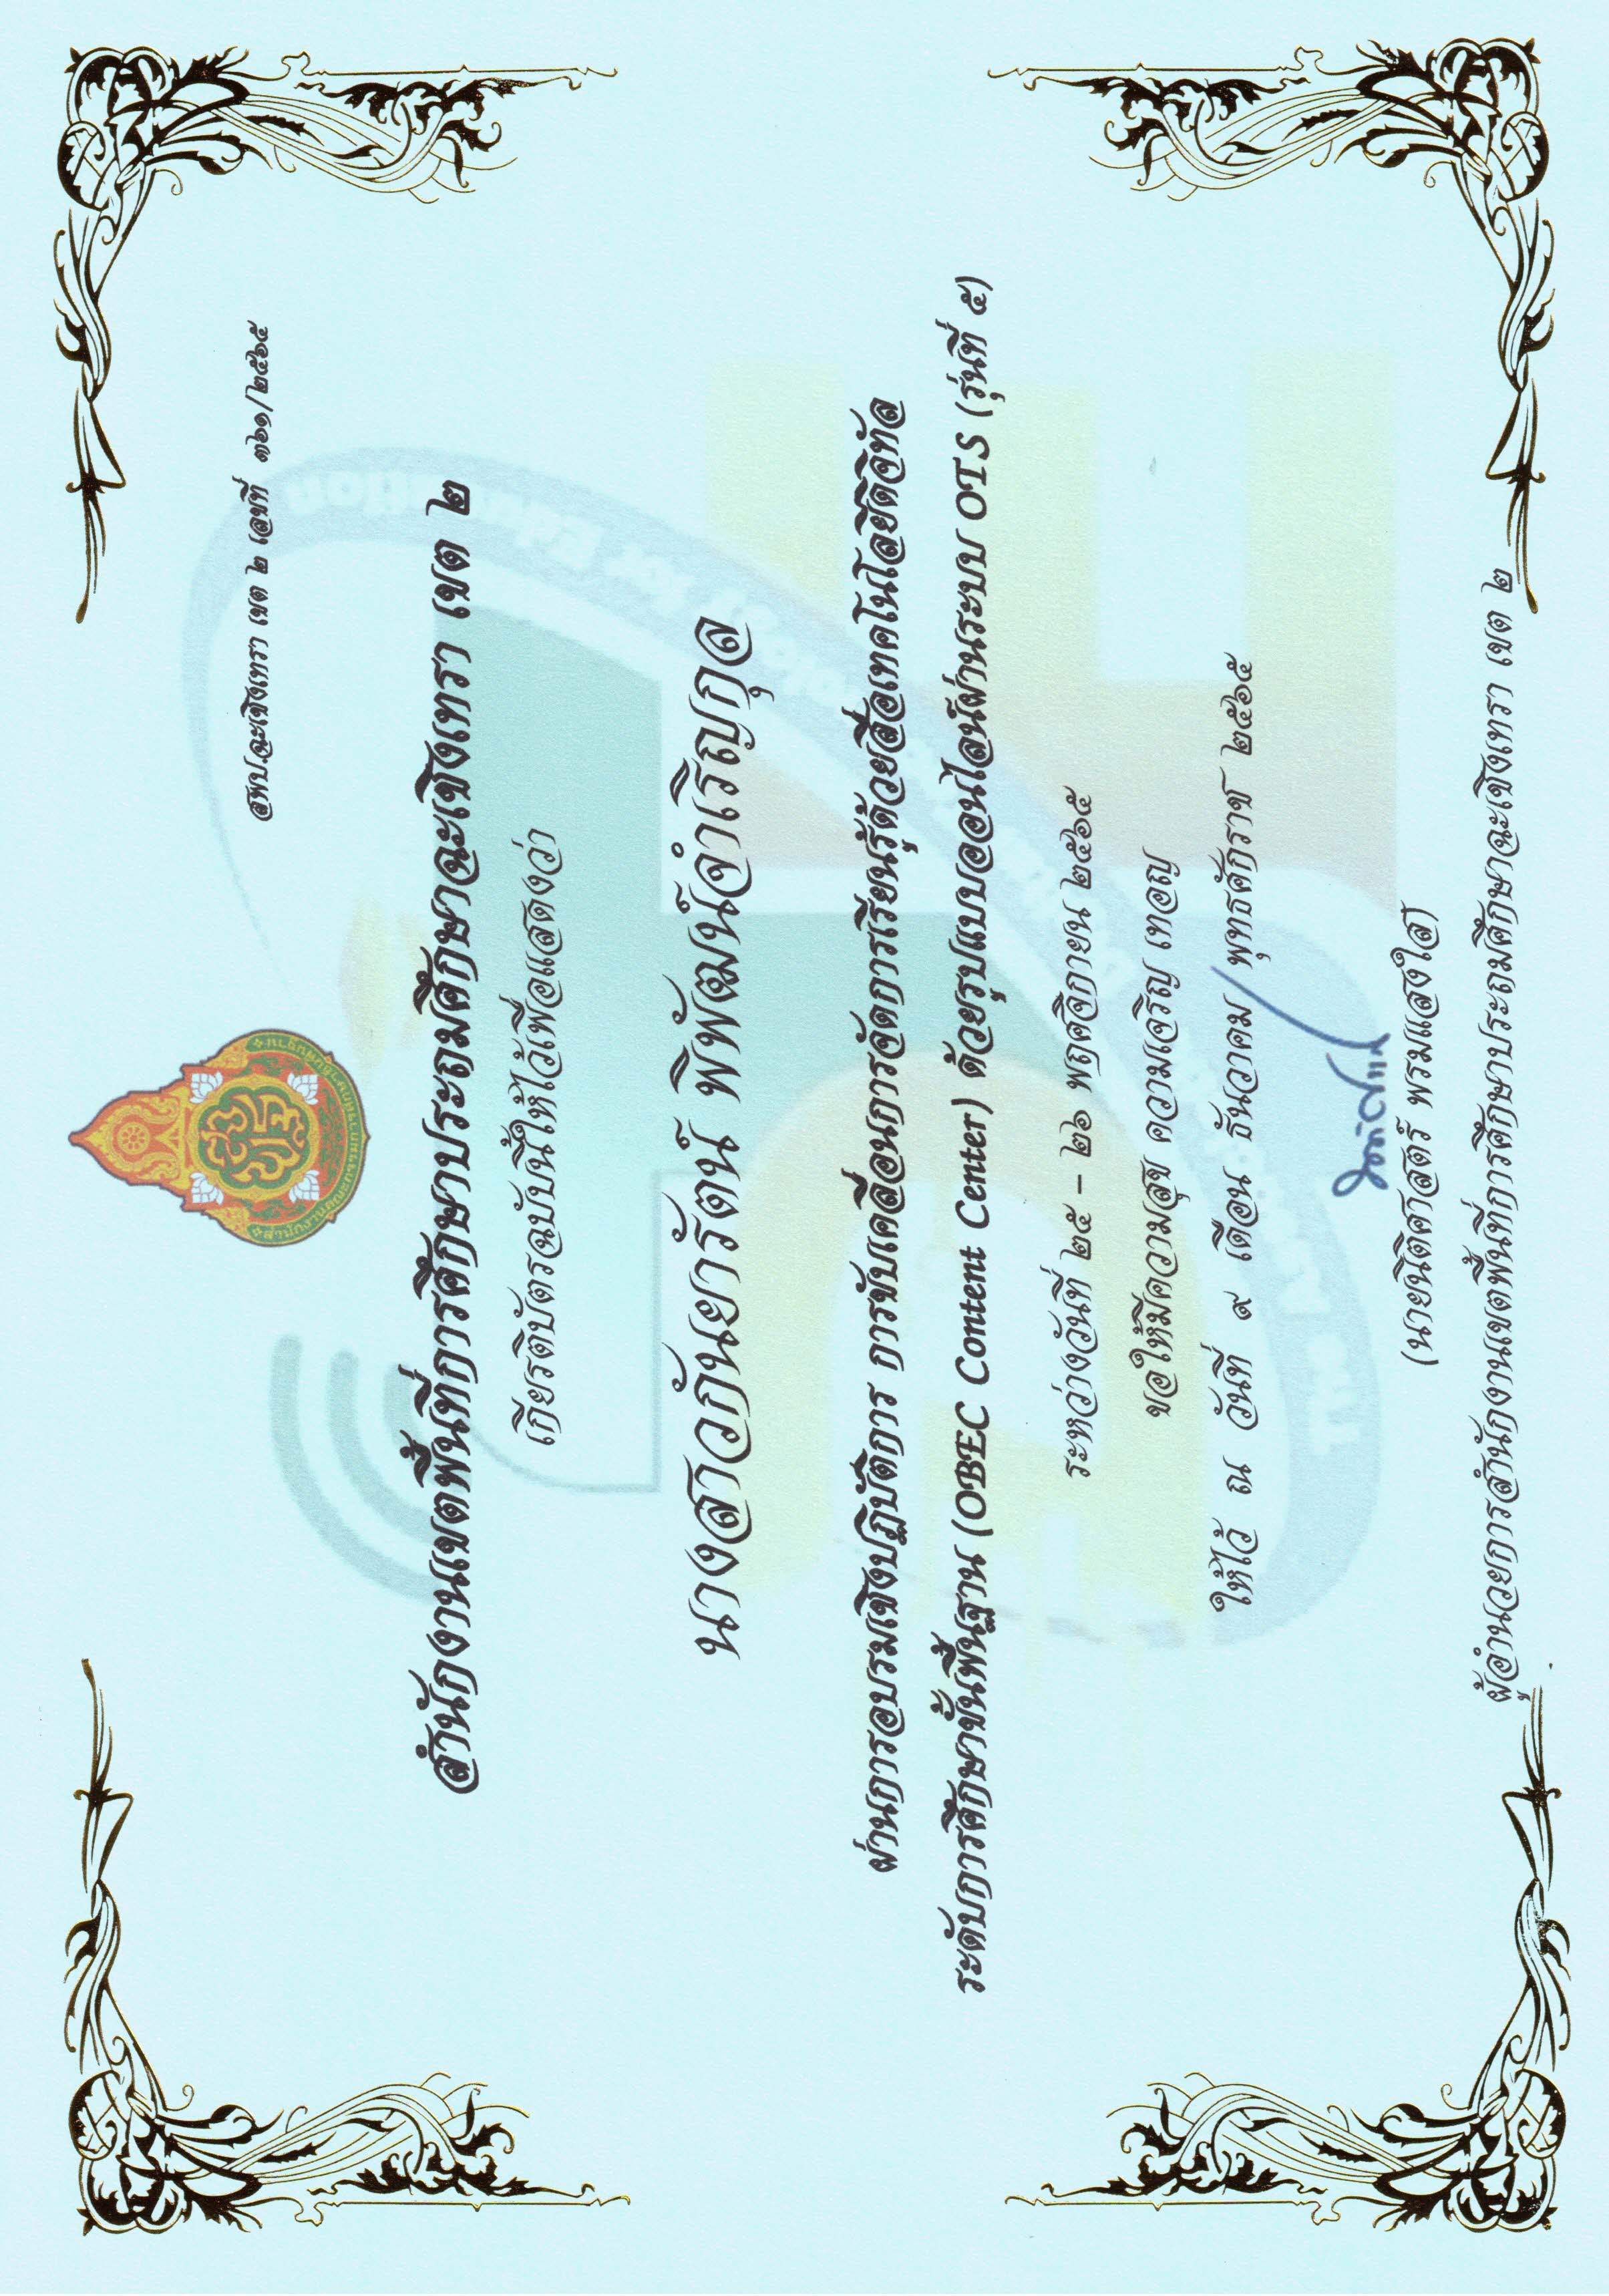 สพป.ฉะเชิงเทรา เขต ๒ เลขที่ ๓๖๑/๒๕๖๕
สำนักงานเขตพื้นที่การศึกษาประถมศึกษาฉะเชิงเทรา เขต ๒
เกียรติบัตรฉบับนี้ให้ไว้เพื่อแสดงว่า
นางสาวกันยารัตน์ พิพัฒน์จำเริญกุล
ผ่านการอบรมเชิงปฏิบัติการ การขับเคลื่อนการจัดการเรียนรู้ด้วยสื่อเทคโนโลยีดิจิทัล
ระดับการศึกษาขั้นพื้นฐาน (OBEC Content Center) ด้วยรูปแบบออนไลน์ผ่านระบบ OTS (รุ่นที่ ๕)
ระหว่างวันที่ ๒๕ - ๒๖ พฤศจิกายน ๒๕๖๕
ขอให้มีความสุข ความเจริญ เทอญ
ให้ไว้ ณ วันที่ ๙ เดือน ธันวาคม พุทธศักราช ๒๕๖๕
(นายนิติศาสตร์ พรมแสงใส)
ผู้อำนวยการสำนักงานเขตพื้นที่การศึกษาประถมศึกษาฉะเชิงเทรา เขต ๒